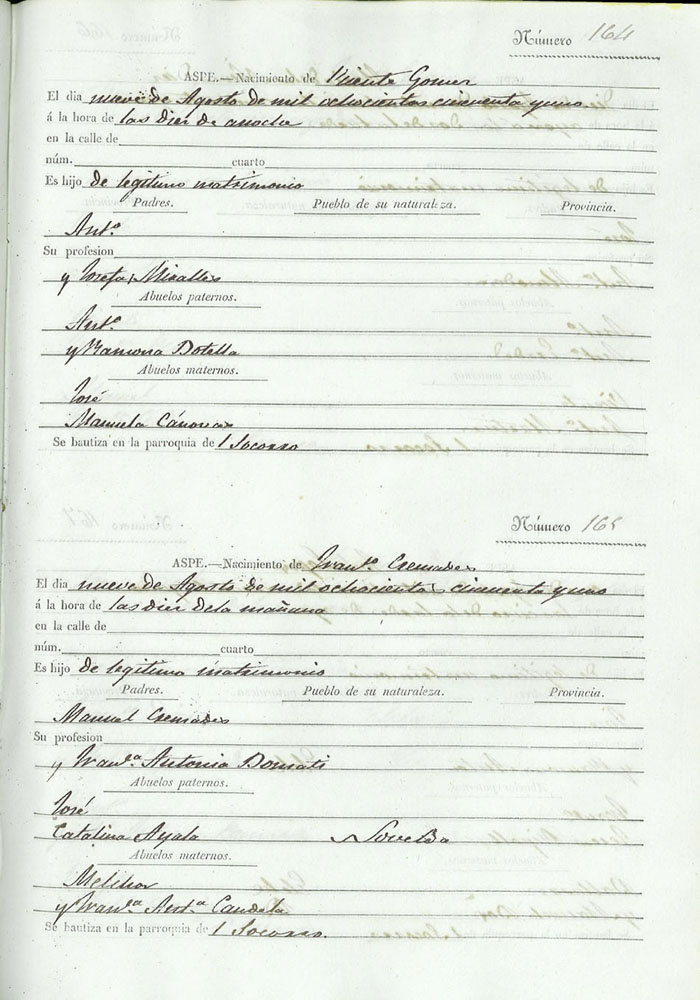 Número 164
ASPE.—Nacimiento de Vicente Gomez
El dia nueve de Agosto de mil ochocientos cincuenta y uno
á la hora de las diez de anoche
en la calle de
núm. cuarto
Es hijo de legitimo matrimonio
Padres. Pueblo de su naturaleza. Provincia.
Antº
Su profesion
y Josefa Miralles
Abuelos paternos.
Antº
y Ramona Botella
Abuelos maternos.
José
Manuela Cánovas
Se bautiza en la parroquia de l Socorro
Número 165
ASPE.—Nacimiento de Franº Cremades
El dia nueve de Agosto de mil ochocientos cincuenta y uno
á la hora de las diez de la mañana
en la calle de
núm. cuarto
Es hijo de legitimo matrimonio
Padres. Pueblo de su naturaleza. Provincia.
Manuel Cremades
Su profesion
y Antonia
Abuelos paternos.
José
Catalina Ayala Novelda
Abuelos maternos.
Melchor
y Candela
Se bautiza en la parroquia de l Socorro.